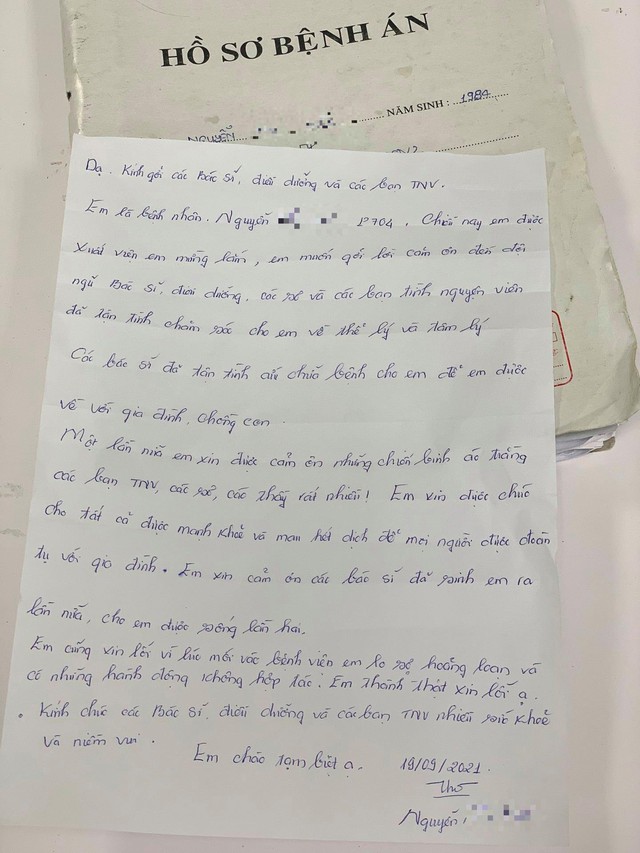 HỒ SƠ BỆNH ÁN
NĂM SINH : 1984
NGUYỄN
Dạ. Kính gởi các Bác sĩ, điều dưỡng và các bạn TNV.
Em là bệnh nhân. Nguyễn P704. Chiều nay em được
xuất viện em mừng lắm, em muốn gởi lời cảm ơn đến đội
ngũ Bác sĩ, điều dưỡng, các sơ và các bạn tình nguyện viên
đã tận tình chăm sóc cho em về thể lý và tâm lý
Các bác sĩ đã tận tình cứu chữa bệnh cho em để em được
về với gia đình, chồng con.
Một lần nữa em xin được cảm ơn những chiến binh áo trắng
các bạn TNV, các sơ, các thầy rất nhiều! Em xin được chúc
cho tất cả được mạnh khoẻ và mau hết dịch để mọi người được đoàn
tụ với gia đình. Em xin cảm ơn các bác sĩ đã sinh em ra
lần nữa, cho em được sống lần hai.
Em cũng xin lỗi vì lúc mới vào bệnh viện em lo sợ hoảng loạn và
có những hành động không hợp tác. Em thành thật xin lỗi ạ.
Kính chúc các Bác sĩ, điều dưỡng và các bạn TNV nhiều sức khoẻ
và niềm vui.
Em chào tạm biệt ạ. 19/09/2021.
Thơ
Nguyễn